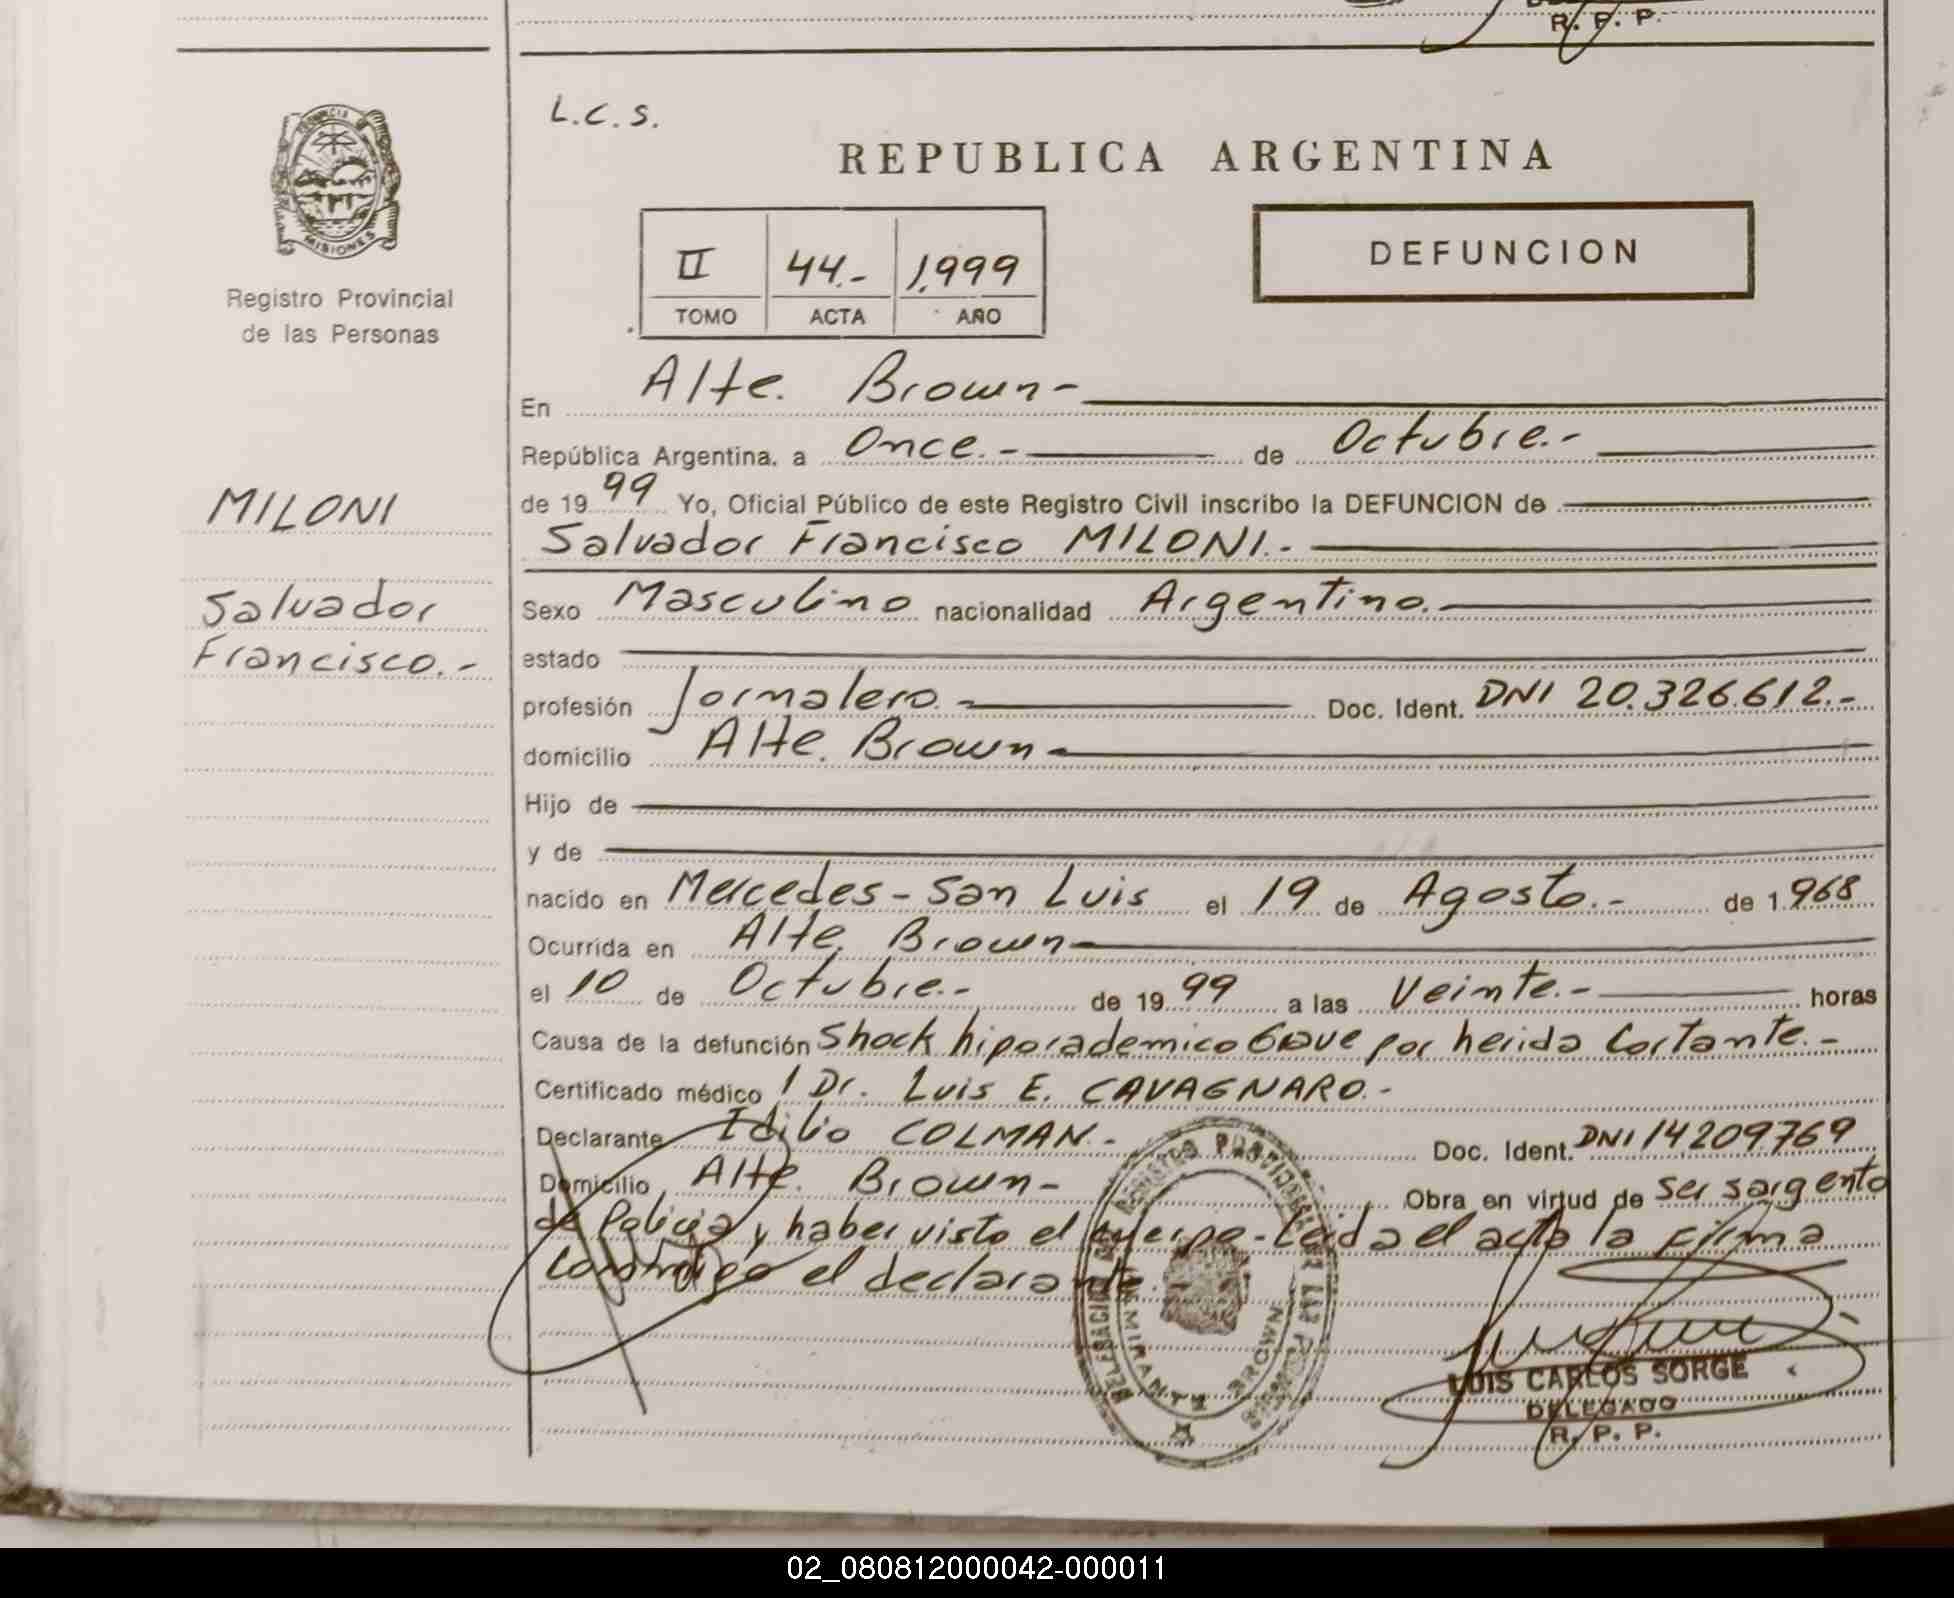 R. P. P.
L.C.S.
PROVINCIA DE
MISIONES
Registro Provincial
de las Personas
REPUBLICA ARGENTINA
DEFUNCION
II 44.- 1.999
TOMO ACTA AÑO
En Alte. Brown-
República Argentina, a Once.- de Octubre.-
de 1999 Yo, Oficial Público de este Registro Civil inscribo la DEFUNCION de
Salvador Francisco MILONI.-
MILONI
Salvador
Francisco.-
Sexo Masculino nacionalidad Argentino.
estado
profesión Jornalero.- Doc. Ident. DNI 20.326.612.-
domicilio Alte. Brown-
Hijo de
y de
nacido en Mercedes-San Luis el 19 de Agosto.- de 1.968
Ocurrida en Alte. Brown-
el 10 de Octubre.- de 1999 a las Veinte.- horas
Causa de la defunción Shock hiporademico Grave por herida Cortante.-
Certificado médico / Dr. Luis E. CAVAGNARO.-
Declarante Idilio COLMAN.- Doc. Ident. DNI 14209769
Domicilio Alte. Brown- Obra en virtud de ser sargento
de Policia y haber visto el cuerpo-Leida el acta la firma
Conmigo el declarante.
REGISTRO PROVINCIAL DE LAS PERSONAS
DELEGACION
ALMIRANTE BROWN
LUIS CARLOS SORGE
DELEGADO
R. P. P.
02_080812000042-000011